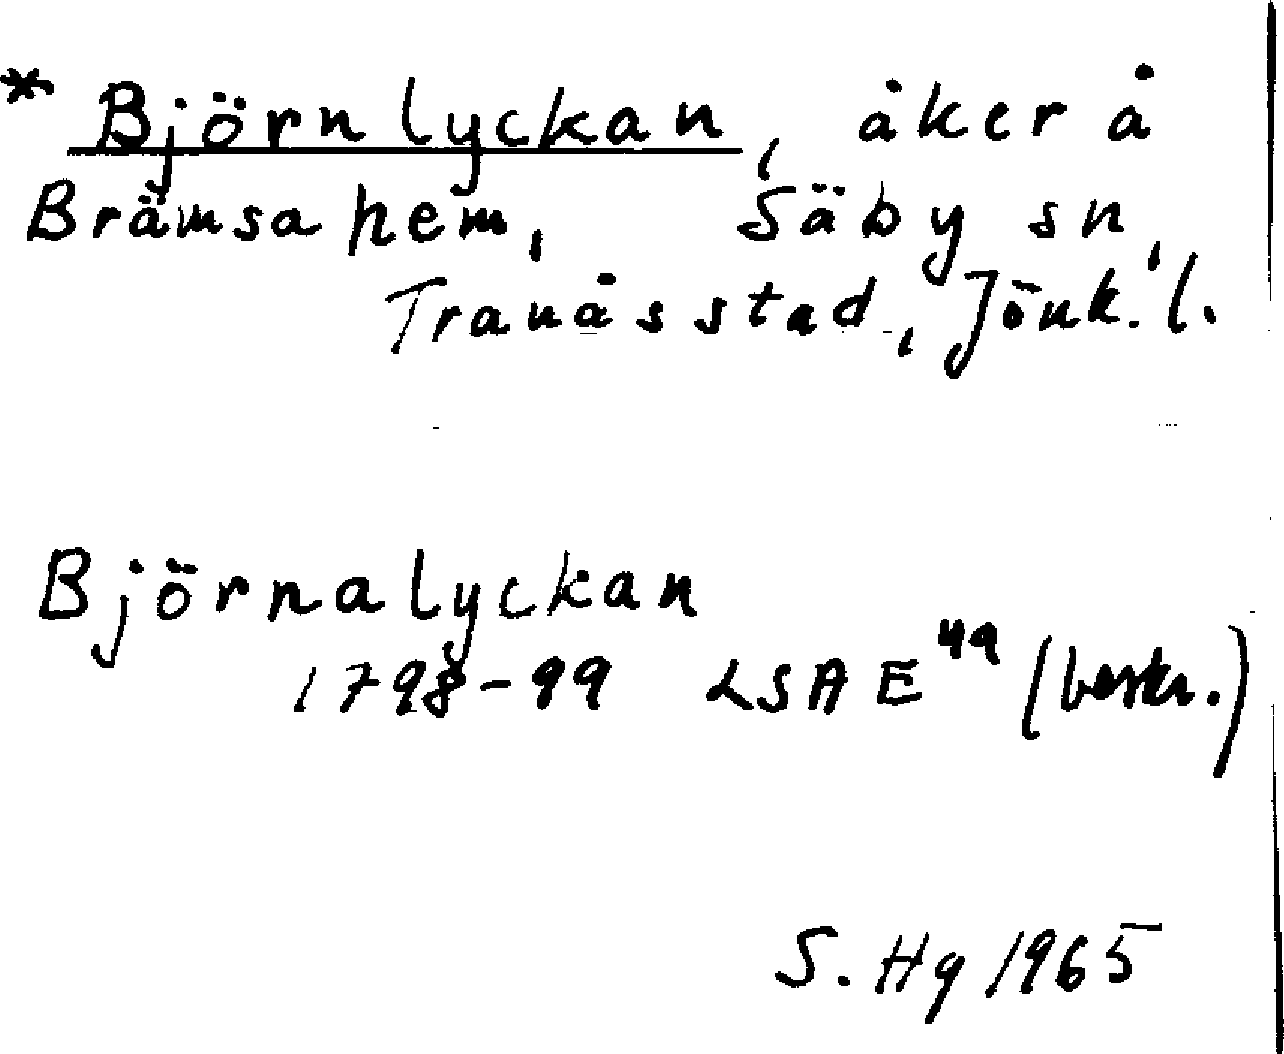 * Björnlyckan, åker å
Brämsahem, Säby sn,
Tranås stad, Jönk. l.
Björnalyckan
1798-99 LSA E 49 (beskr.)
S. Hg 1965